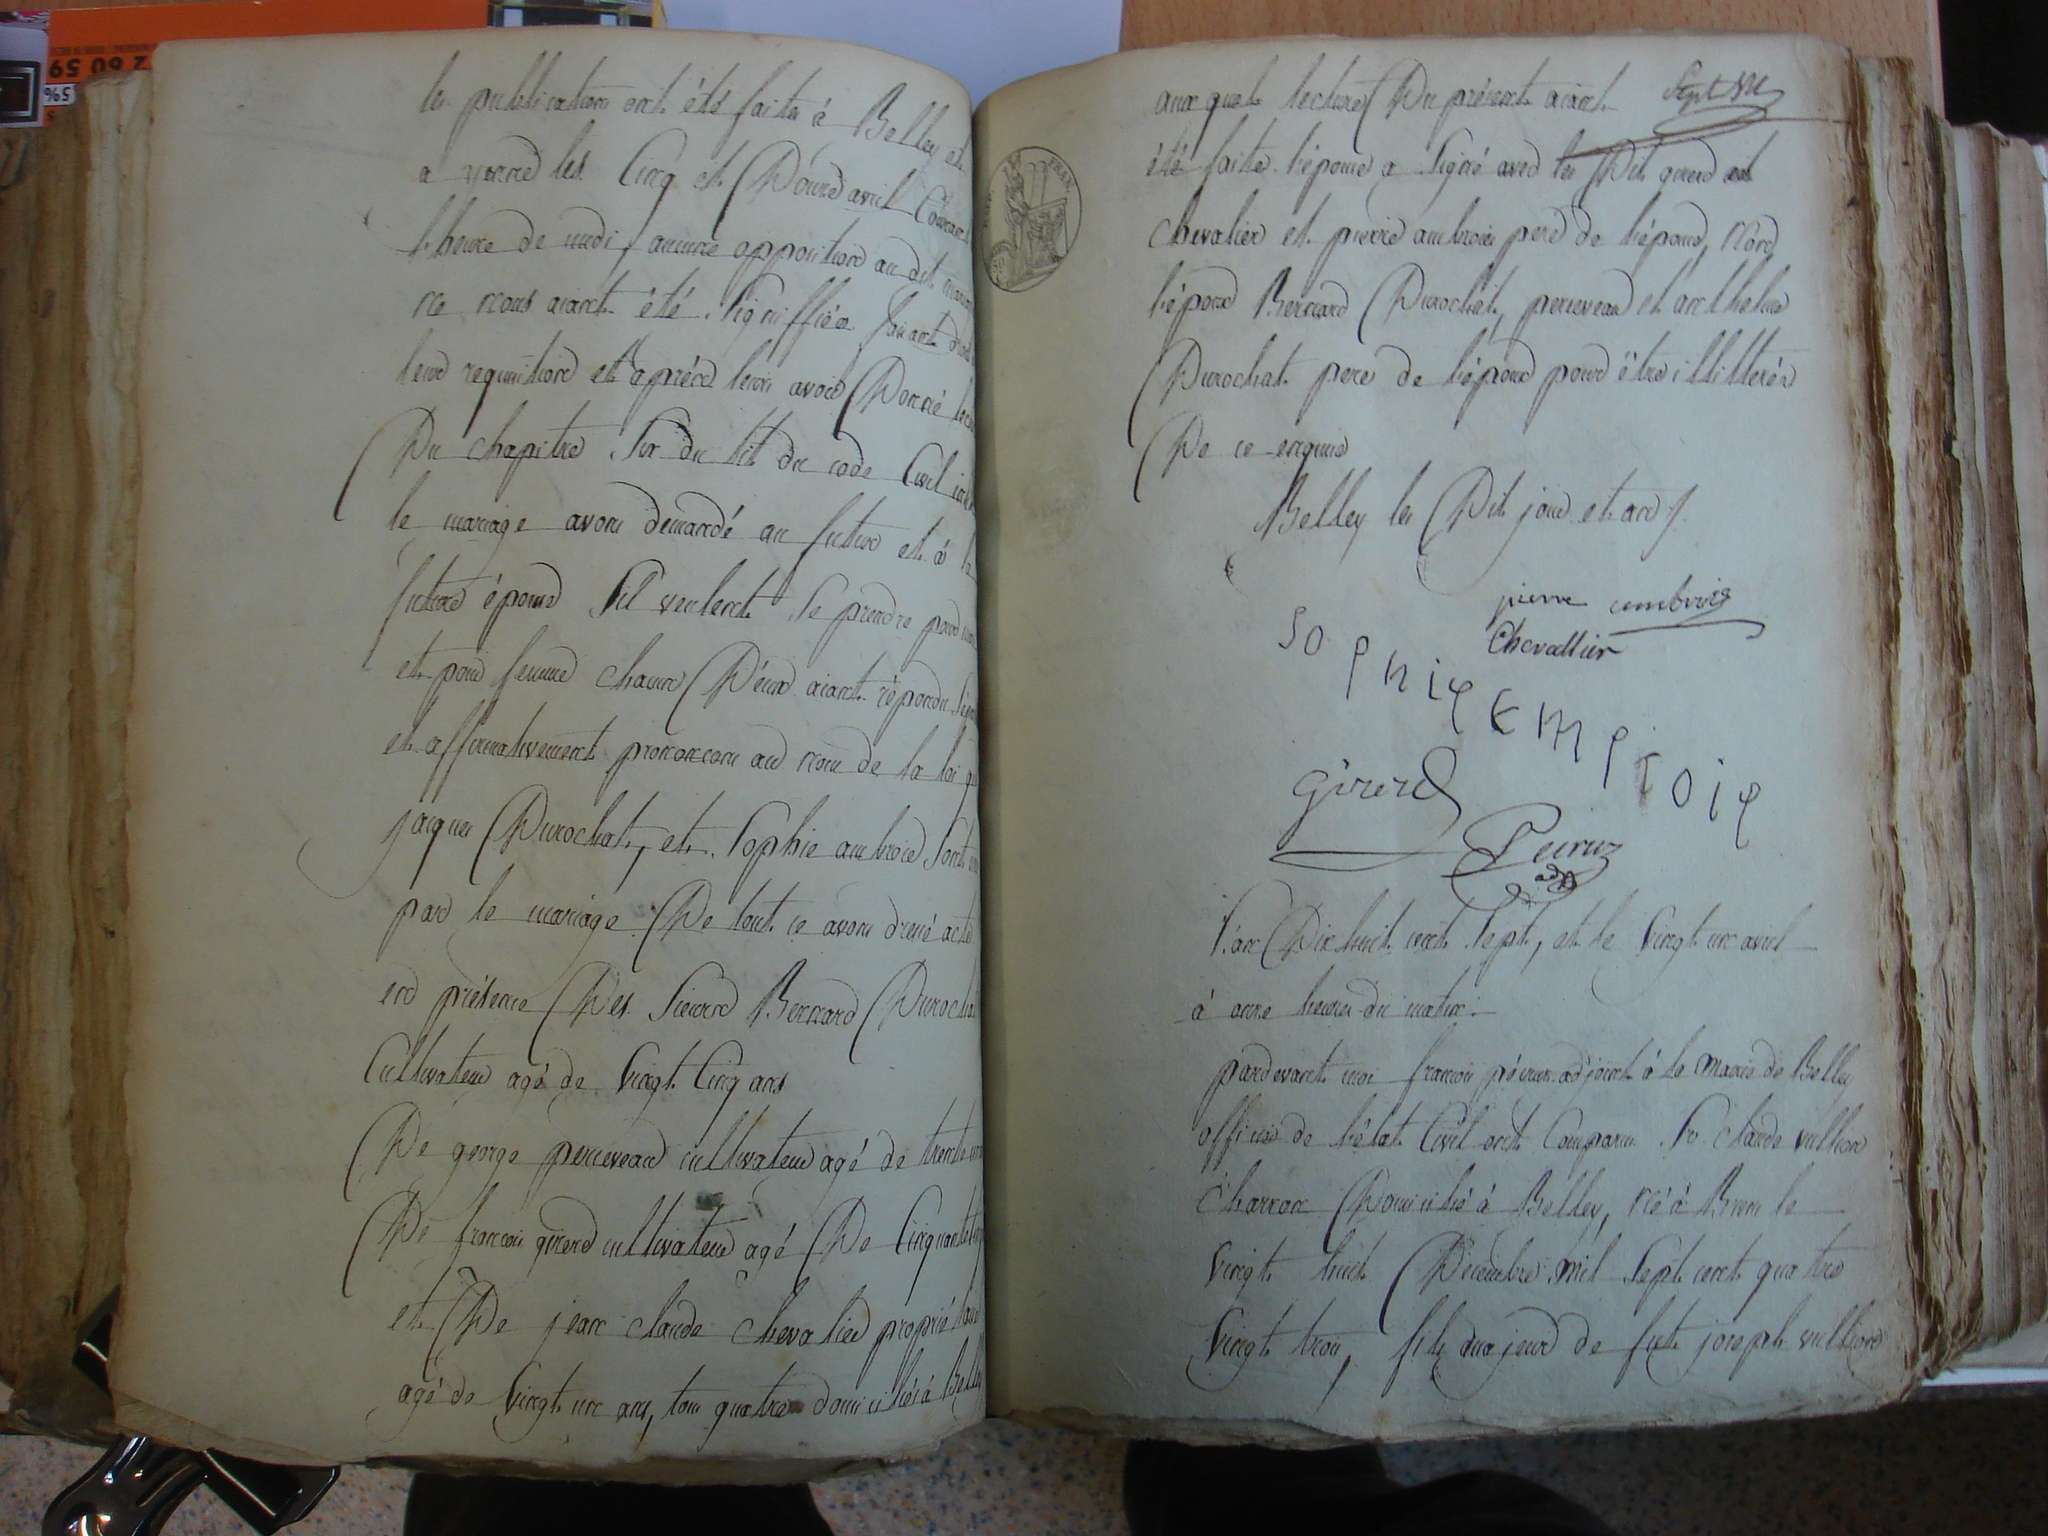 les publications ont étés faites à Belley et
a les Cinq et Douze avril Courant
l'heure de midi, aucune opposition au dit mariage
ne nous aiant été Signiffiée faisant droit
leur requisition et après leurs avoir Donné
Du chapitre Six du tit du code Civil
le mariage avons demandé au futur et à la
future épouse S'il veulent Se prendre pour
et pour femme chacun D'eux aiant répondu
et affirmativement prononcons au nom de la loi
jacques Durochat, et Sophie ambrois Sont
par le mariage De tout ce avons dressé acte
en présence Des Sieurs Bernard Durochat
Cultivateur agé de Vingt Cinq ans
De george perceveaux cultivateur agé de trente
De francois girerd cultivateur agé De Cinquante
et De jean claude chevalier propriétaire
agé de Vingt un ans, tous quatre domiciliés à Belley
aux quels lecture Du présent aiant
été faite l'épouse a Signé avec les Dit girerd et
chevalier et pierre ambrois pere de l'épouse, non
l'époux Bernard Durochat, perceveau et anthelme
Durochat pere de l'époux pour être illitterés
De ce enquis
Belley les Dit jour et an /.
REP. FRAN.
pierre ambrois
Chevallier
SOPhie EMProie
Girerd
Peiruz
adjt
L'an Dix huit cent Sept, et le Vingt un avril
à onze heures du matin
pardevant moi francois péiruz adjoint à la Mairie de Belley
officier de l'état Civil ont Comparu Sr. claude vullion
Charron Domicilié à Belley, né à Brens le
Vingt huit Décembre mil Sept cent quatre
Vingt trois, fils majeur de fut joseph vullion